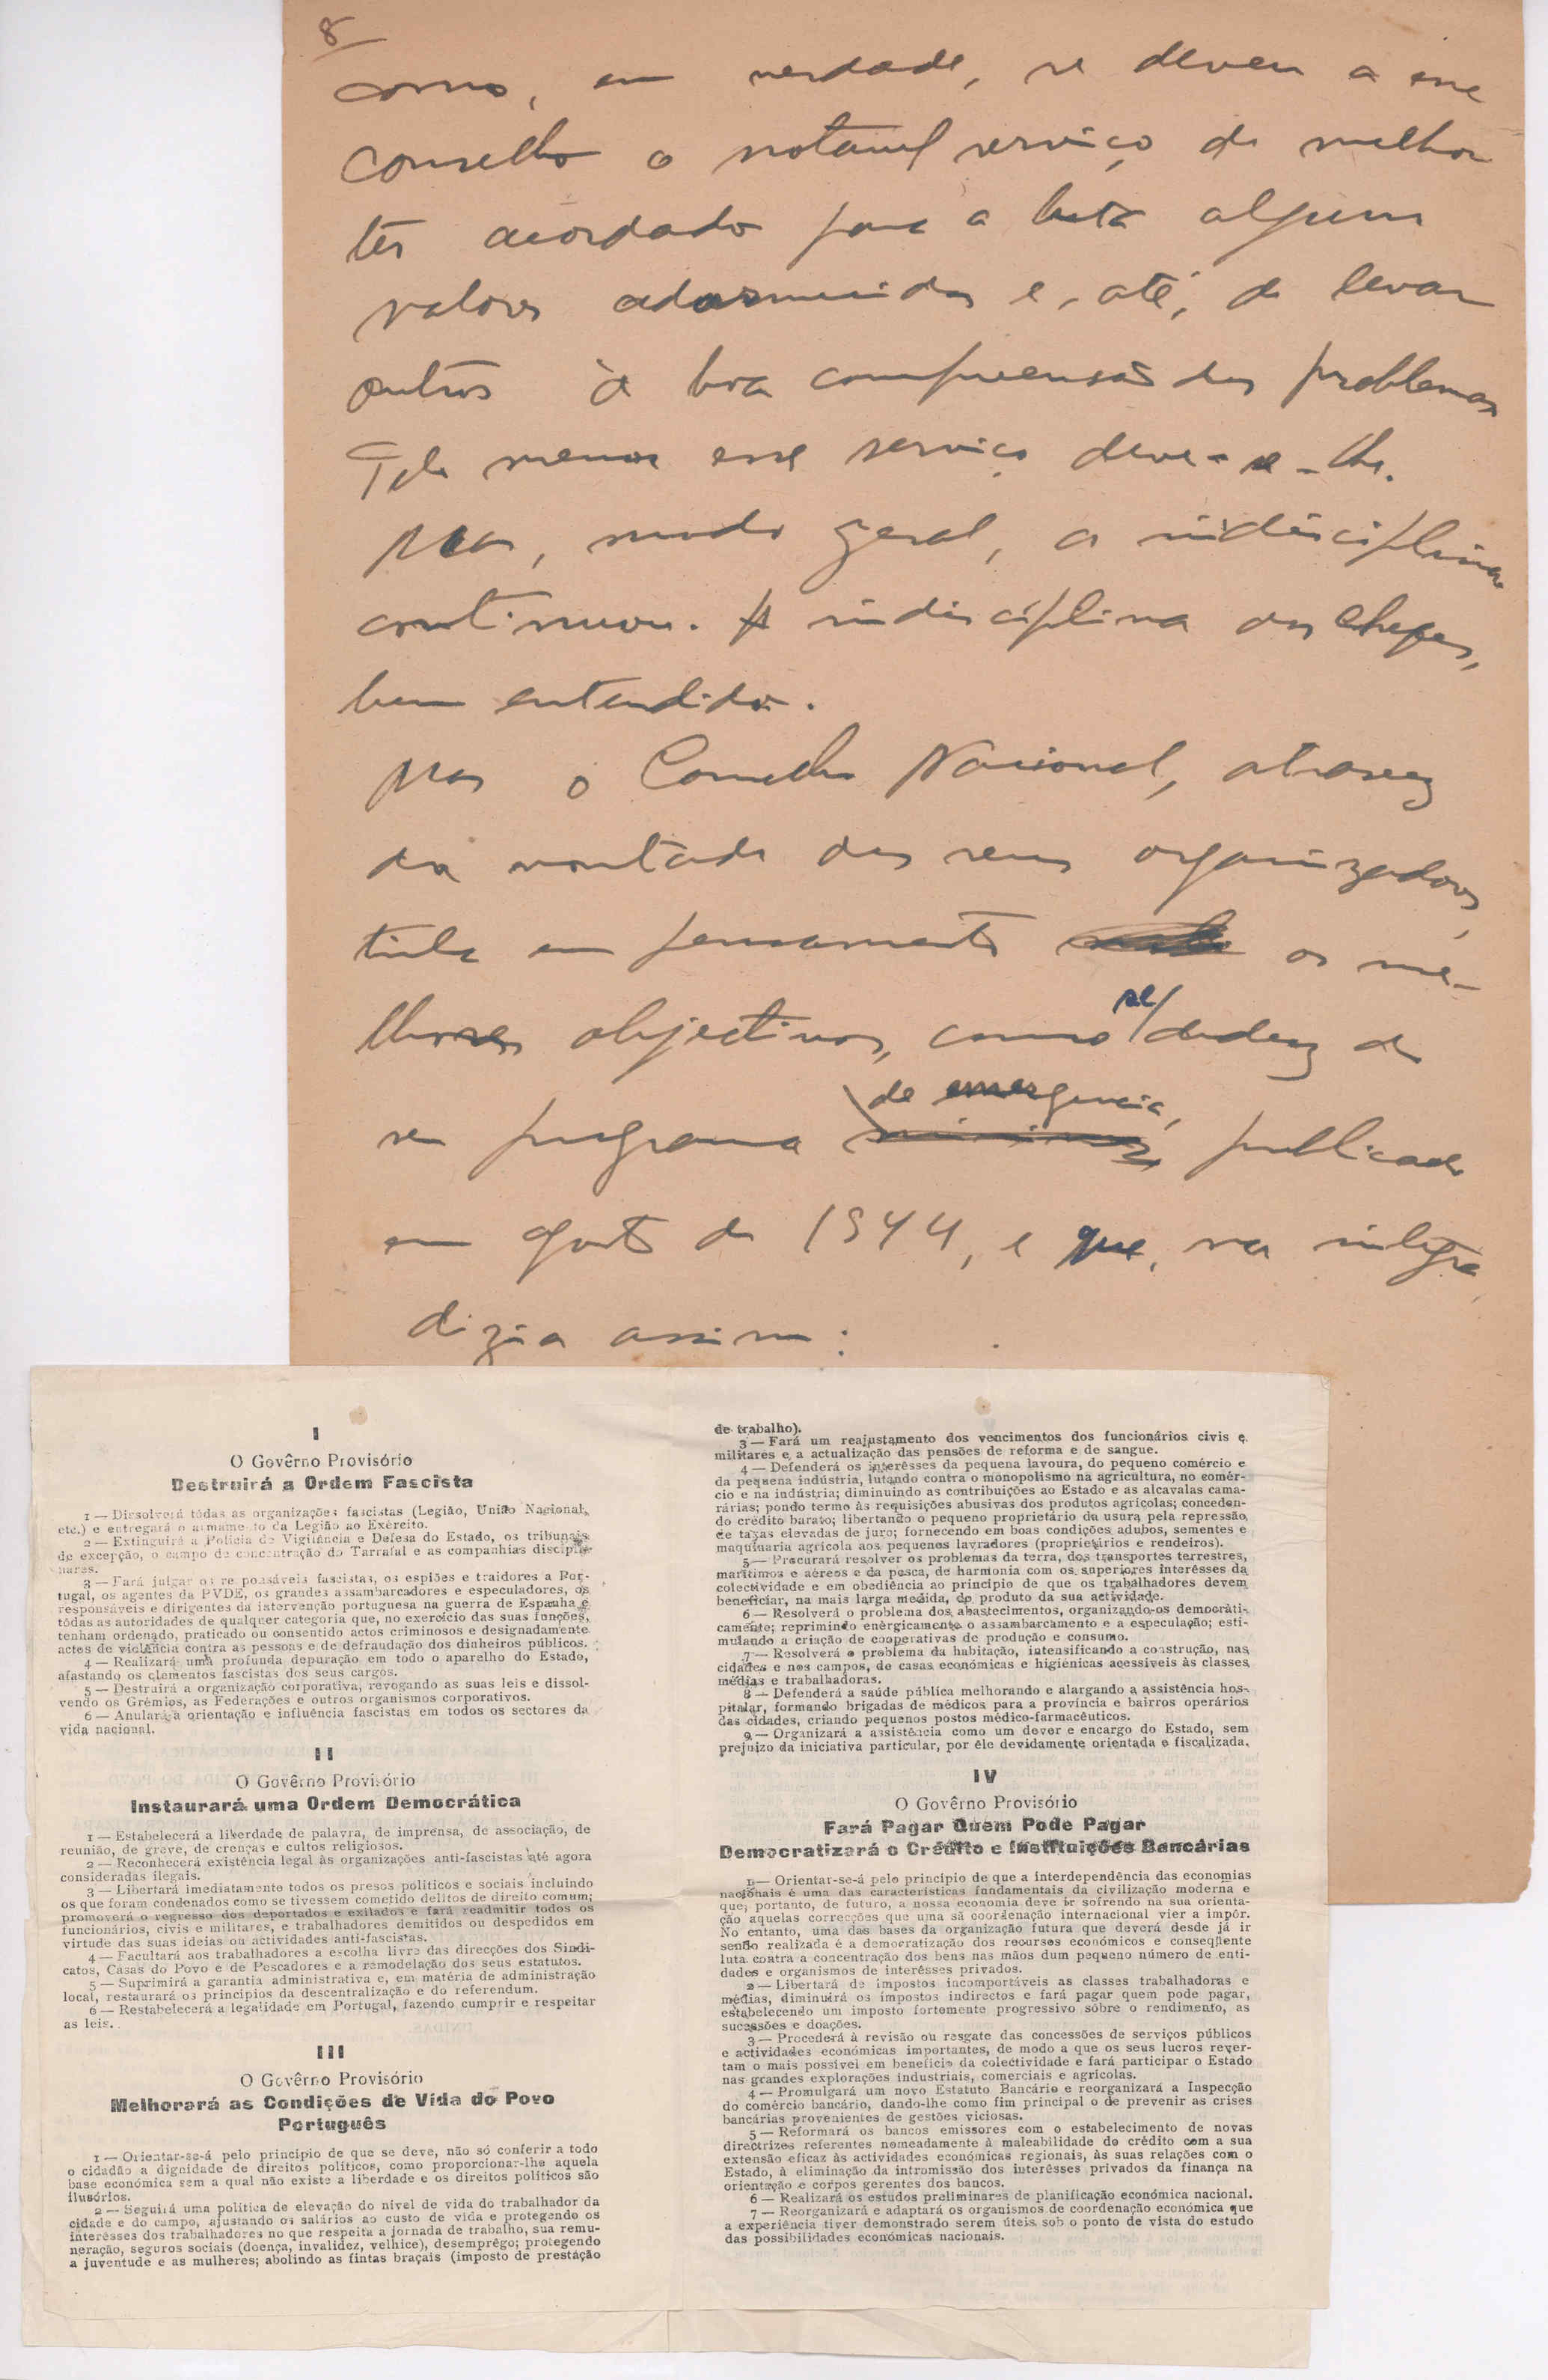 8
como, em verdade, se deveu a esse
conselho o notavel serviço de melhor
ter acordado para a luta alguns
valores adormecidos e, até, de levar
outros à boa compreensão dos problemas
Pelo menos esse serviço deve-se-lhe.
Mas, modo geral, a indisciplina
continuou. A indisciplina dos chefes,
bem entendido.
Mas o Conselho Nacional, atravez
da vontade dos seus organizadores,
tinha em pensamento os me-
lhores objectivos, como se deduz do
seu programa de emergencia, publicado
em agosto de 1944, e que, na integra,
dizia assim:
I
O Govêrno Provisório
Destruirá a Ordem Fascista
1 — Dissolverá tôdas as organizações fascistas (Legião, União Nacional,
etc.) e entregará o armamento da Legião ao Exército.
2 — Extinguirá a Polícia de Vigilância e Defesa do Estado, os tribunais
de excepção, o campo de concentração do Tarrafal e as companhias discipli-
nares.
3 — Fará julgar os responsáveis fascistas, os espiões e traidores a Por-
tugal, os agentes da PVDE, os grandes assambarcadores e especuladores, os
responsáveis e dirigentes da intervenção portuguesa na guerra de Espanha e
tôdas as autoridades de qualquer categoria que, no exercício das suas funções,
tenham ordenado, praticado ou consentido actos criminosos e designadamente
actes de violência contra as pessoas e de defraudação dos dinheiros públicos.
4 — Realizará uma profunda depuração em todo o aparelho do Estado,
afastando os elementos fascistas dos seus cargos.
5 — Destruirá a organização corporativa, revogando as suas leis e dissol-
vendo os Grémios, as Federações e outros organismos corporativos.
6 — Anulará a orientação e influência fascistas em todos os sectores da
vida nacional.
II
O Govêrno Provisório
Instaurará uma Ordem Democrática
1 — Estabelecerá a liberdade de palavra, de imprensa, de associação, de
reunião, de greve, de crenças e cultos religiosos.
2 — Reconhecerá existência legal às organizações anti-fascistas até agora
consideradas ilegais.
3 — Libertará imediatamente todos os presos políticos e sociais incluindo
os que foram condenados como se tivessem cometido delitos de direito comum;
promoverá o regresso dos deportados e exilados e fará readmitir todos os
funcionários, civis e militares, e trabalhadores demitidos ou despedidos em
virtude das suas ideias ou actividades anti-fascistas.
4 — Facultará aos trabalhadores a escolha livre das direcções dos Sindi-
catos, Casas do Povo e de Pescadores e a remodelação dos seus estatutos.
5 — Suprimirá a garantia administrativa e, em matéria de administração
local, restaurará os princípios da descentralização e do referendum.
6 — Restabelecerá a legalidade em Portugal, fazendo cumprir e respeitar
as leis.
III
O Govêrno Provisório
Melhorará as Condições de Vida do Povo
Português
1 — Orientar-se-á pelo princípio de que se deve, não só conferir a todo
o cidadão a dignidade de direitos políticos, como proporcionar-lhe aquela
base económica sem a qual não existe a liberdade e os direitos políticos são
ilusórios.
2 — Seguirá uma política de elevação do nível de vida do trabalhador da
cidade e do campo, ajustando os salários ao custo de vida e protegendo os
interêsses dos trabalhadores no que respeita a jornada de trabalho, sua remu-
neração, seguros sociais (doença, invalidez, velhice), desemprêgo; protegendo
a juventude e as mulheres; abolindo as fintas braçais (imposto de prestação
de trabalho).
3 — Fará um reajustamento dos vencimentos dos funcionários civis e
militares e a actualização das pensões de reforma e de sangue.
4 — Defenderá os interêsses da pequena lavoura, do pequeno comércio e
da pequena indústria, lutando contra o monopolismo na agricultura, no comér-
cio e na indústria; diminuindo as contribuições ao Estado e as alcavalas cama-
rárias; pondo termo às requisições abusivas dos produtos agrícolas; conceden-
do crédito barato; libertando o pequeno proprietário da usura pela repressão
de taxas elevadas de juro; fornecendo em boas condições adubos, sementes e
maquinaria agrícola aos pequenos lavradores (proprietários e rendeiros).
5 — Procurará resolver os problemas da terra, dos transportes terrestres,
marítimos e aéreos e da pesca, de harmonia com os superiores interêsses da
colectividade e em obediência ao princípio de que os trabalhadores devem
beneficiar, na mais larga medida, do produto da sua actividade.
6 — Resolverá o problema dos abastecimentos, organizando-os democràti-
camente; reprimindo enèrgicamente o assambarcamento e a especulação; esti-
mulando a criação de cooperativas de produção e consumo.
7 — Resolverá o problema da habitação, intensificando a construção, nas
cidades e nos campos, de casas económicas e higiénicas acessíveis às classes
médias e trabalhadoras.
8 — Defenderá a saúde pública melhorando e alargando a assistência hos-
pitalar, formando brigadas de médicos para a província e bairros operários
das cidades, criando pequenos postos médico-farmacêuticos.
9 — Organizará a assistência como um dever e encargo do Estado, sem
prejuízo da iniciativa particular, por êle devidamente orientada e fiscalizada.
IV
O Govêrno Provisório
Fará Pagar Quem Pode Pagar
Democratizará o Crédito e Instituições Bancárias
1 — Orientar-se-á pelo princípio de que a interdependência das economias
nacionais é uma das características fundamentais da civilização moderna e
que, portanto, de futuro, a nossa economia deve ir sofrendo na sua orienta-
ção aquelas correcções que uma sã coordenação internacional vier a impôr.
No entanto, uma das bases da organização futura que deverá desde já ir
sendo realizada é a democratização dos recursos económicos e conseqüente
luta contra a concentração dos bens nas mãos dum pequeno número de enti-
dades e organismos de interêsses privados.
2 — Libertará de impostos incomportáveis as classes trabalhadoras e
médias, diminuirá os impostos indirectos e fará pagar quem pode pagar,
estabelecendo um imposto fortemente progressivo sôbre o rendimento, as
sucessões e doações.
3 — Procederá à revisão ou resgate das concessões de serviços públicos
e actividades económicas importantes, de modo a que os seus lucros rever-
tam o mais possível em benefício da colectividade e fará participar o Estado
nas grandes explorações industriais, comerciais e agrícolas.
4 — Promulgará um novo Estatuto Bancário e reorganizará a Inspecção
do comércio bancário, dando-lhe como fim principal o de prevenir as crises
bancárias provenientes de gestões viciosas.
5 — Reformará os bancos emissores com o estabelecimento de novas
directrizes referentes nomeadamente à maleabilidade do crédito com a sua
extensão eficaz às actividades económicas regionais, às suas relações com o
Estado, à eliminação da intromissão dos interêsses privados da finança na
orientação e corpos gerentes dos bancos.
6 — Realizará os estudos preliminares de planificação económica nacional.
7 — Reorganizará e adaptará os organismos de coordenação económica que
a experiência tiver demonstrado serem úteis sob o ponto de vista do estudo
das possibilidades económicas nacionais.